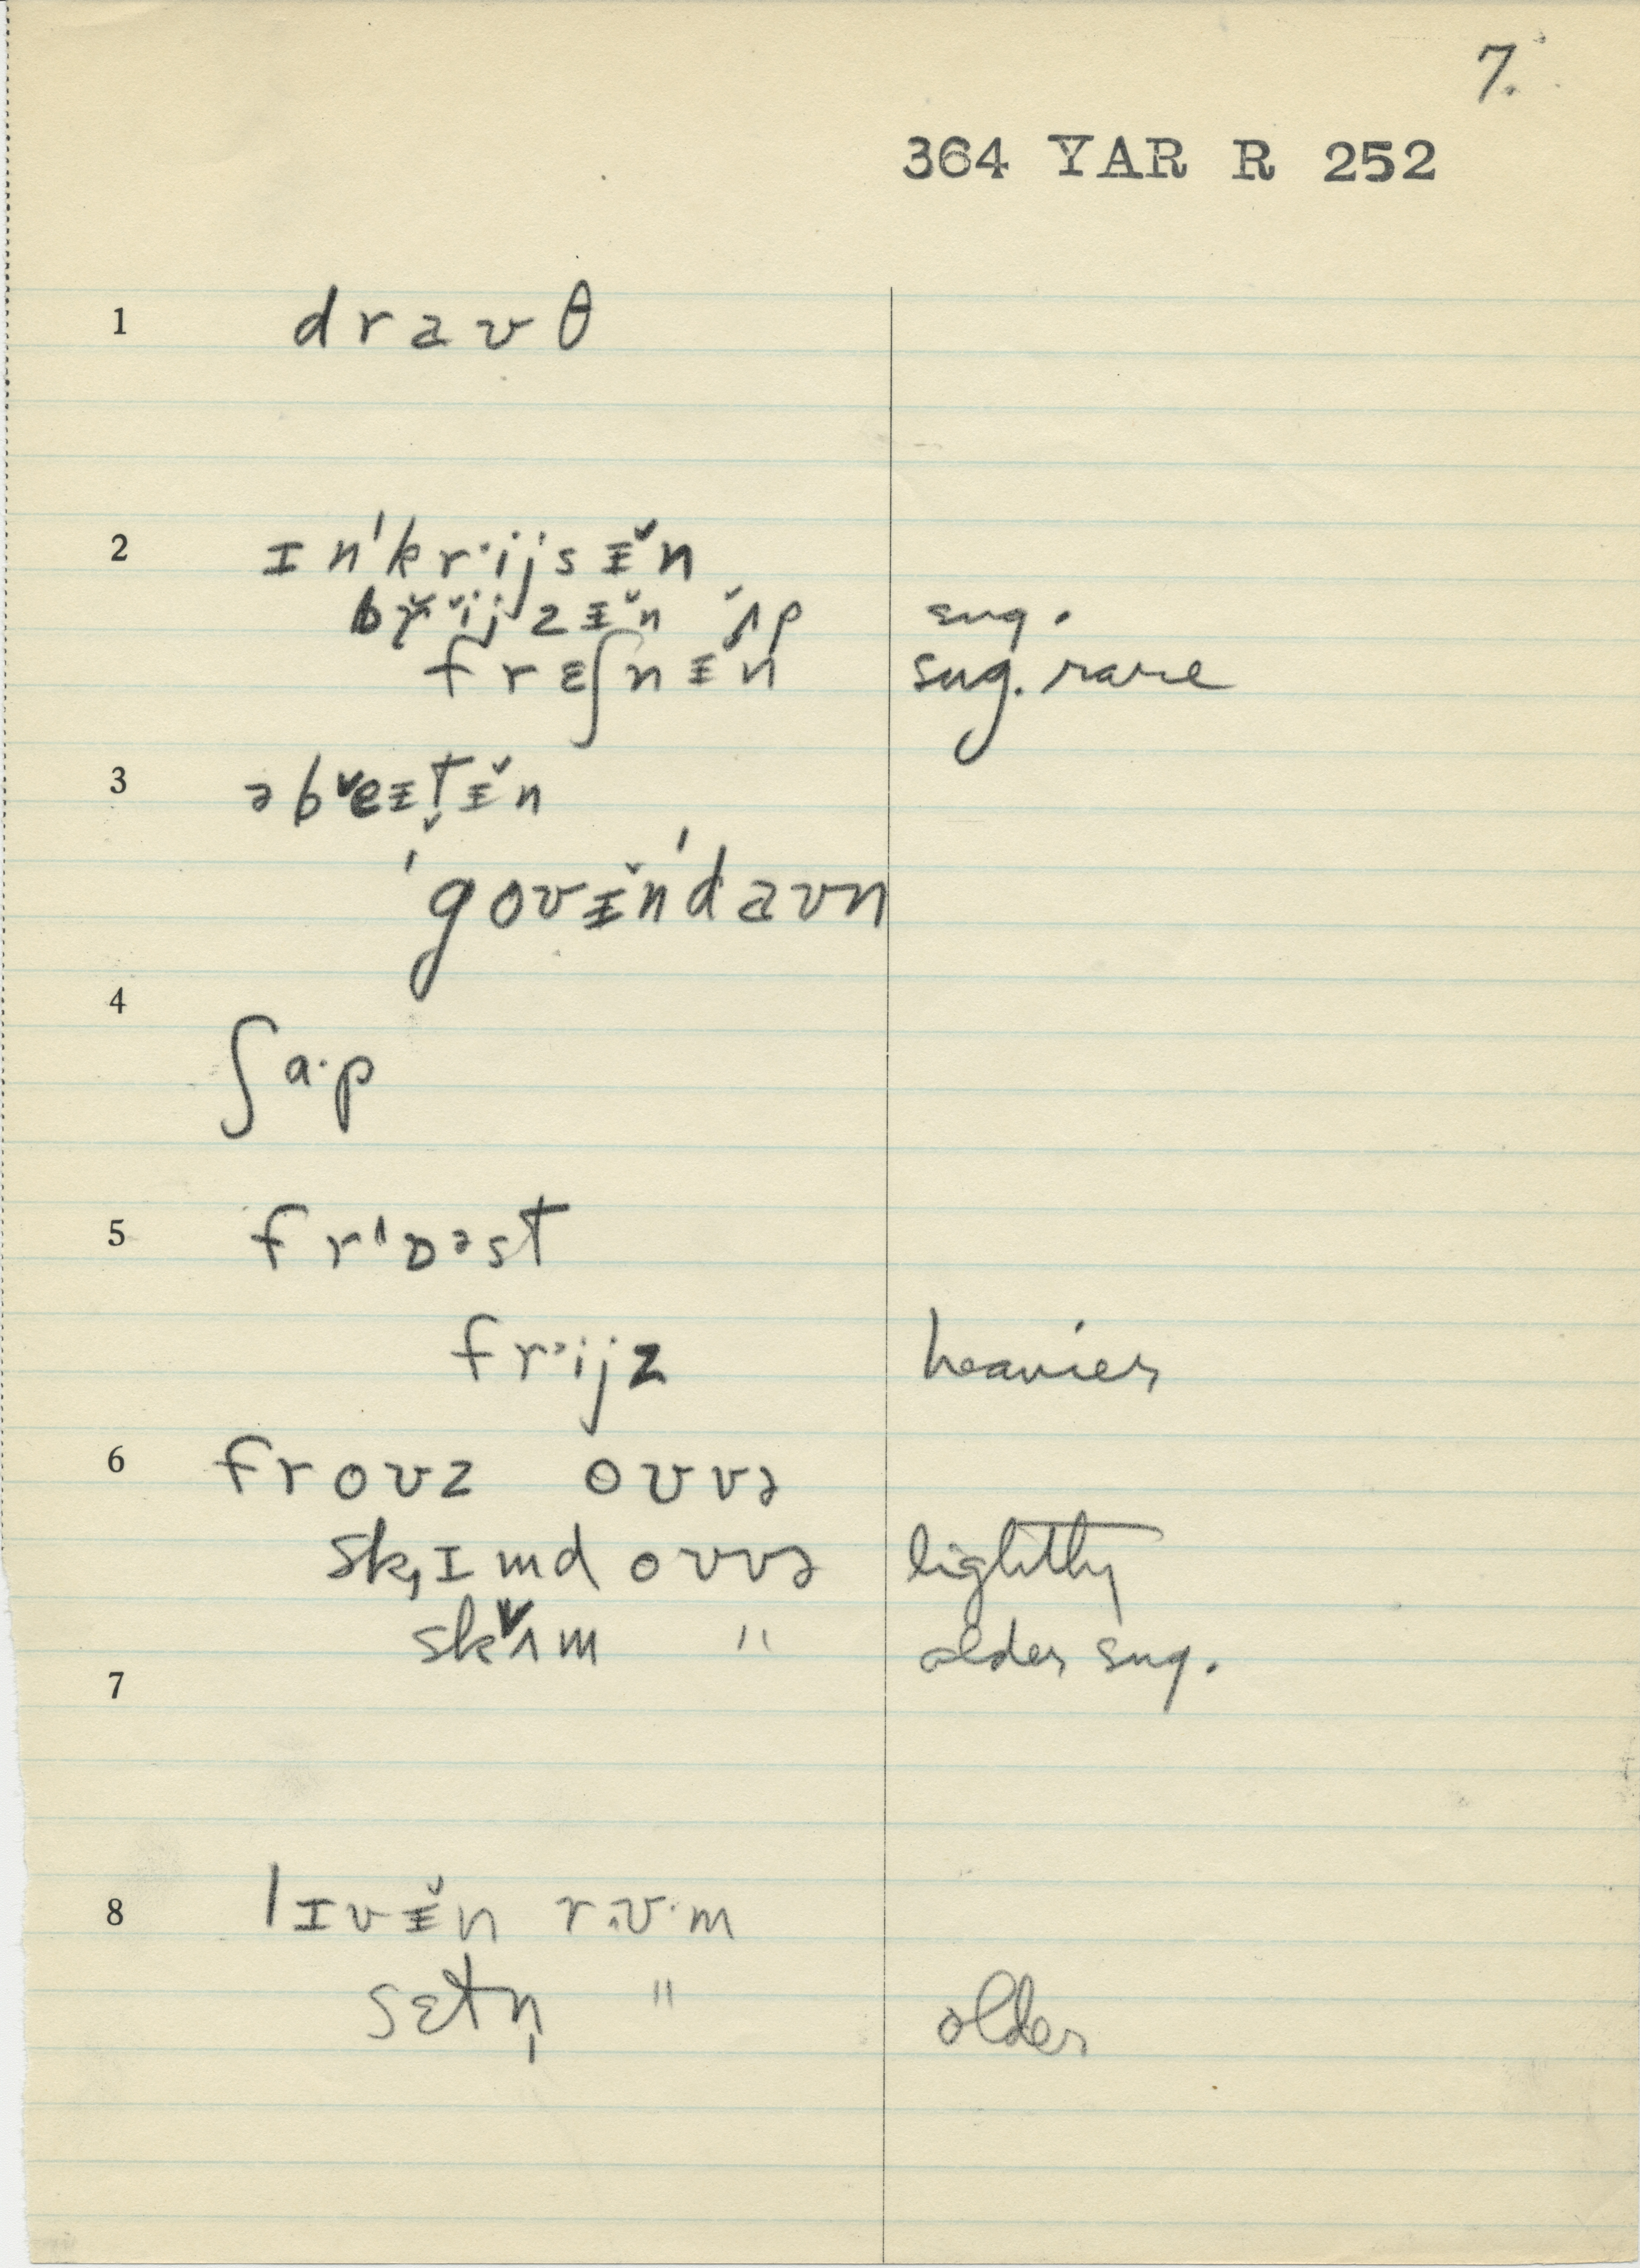 7.
364 YAR R 252
1 draʊθ
2 ɪn'kr·ijsɪ̵̆n
br̆ĭjzɪ̵̆n ʌ̆p sug.
frɛʃnɪ̵n sug. rare
3 əbˇeɪ̵t̬ɪ̵̆n
'goʊɪ̵̆n'daʊn
4
ʃa·p
5 frɒəst
frᵊijz heavier
6 froʊz oʊvə
sk̦ɪmd oʊvə lightly
skˇɪm " older sug.
7
8 lɪvɪ̵̆n rʊ·m
sɛtn̩ " older